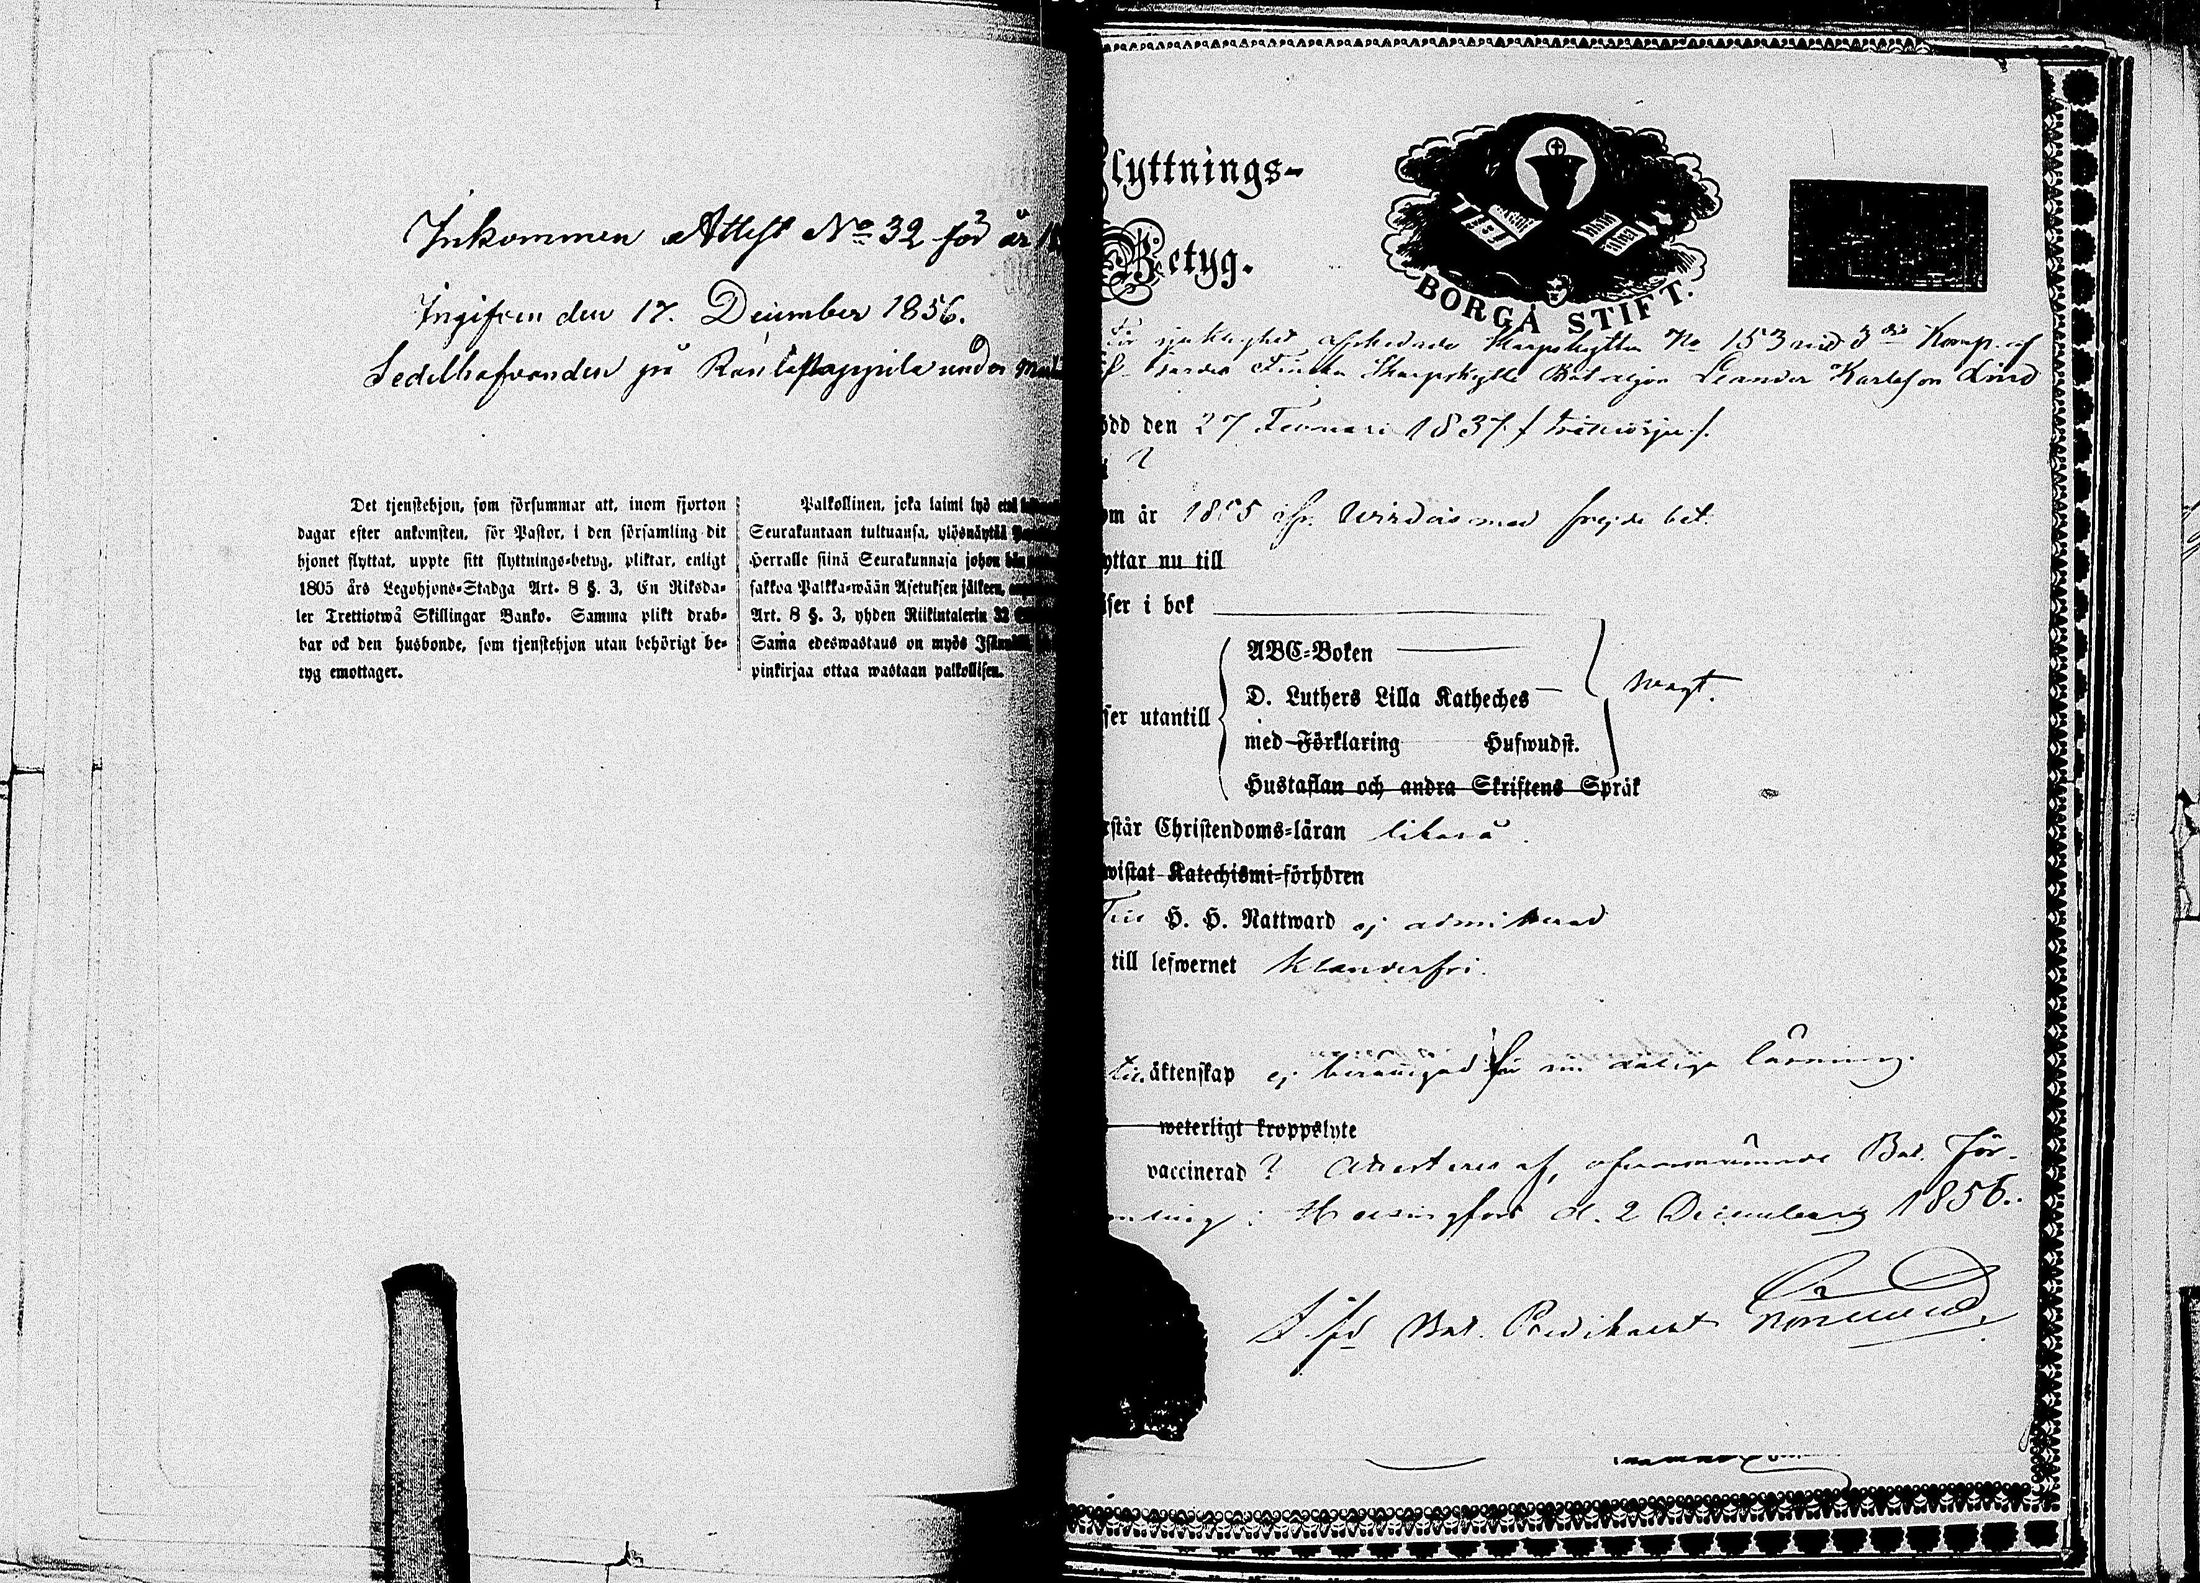 Inkommen Attest No 32 för år
Ingifven den 17. December 1856.
Sedelhafvanden på under
Det tjenstehjon, som försummar att, inom fjorton
dagar efter ankomsten, för Pastor, i den församling dit
hjonet flyttat, uppte sitt flyttnings-betyg, pliktar, enligt
1805 års Legohjons-Stadga Art. 8 §. 3, En Riksda-
ler Trettiotwå Skillingar Banko. Samma plikt drab-
bar ock den husbonde, som tjenstehjon utan behörigt be-
tyg emottager.
Palkollinen, joka laimi lyö
Seurakuntaan tultuansa, ylösnäyttää
Herralle siinä Seurakunnasa johon hän
sakkoa Palkka-wään Asetuksen jälkeen,
Art. 8 §. 3, yhden Riikintalerin 32
Sama edeswastaus on myös
pinkirjaa ottaa wastaan palkollisen.
lyttnings-
Betyg.
BORGÅ STIFT.
För sjuklighet afskedade Skarpskytten No 153 vid 3die Komp. af
Finska Skarpskytte Bataljon Leander Karlsson Lind
ödd den 27 Februari 1837
i ?
om år med frejde bet.
yttar nu till
äser i bok
ABC-Boken
D. Luthers Lilla Katheches
med Förklaring Hufwudst.
Hustaflan och andra Skriftens Språk
svagt.
ser utantill
rstår Christendoms-läran likaså.
wistat Katechismi-förhören
Till H. H. Nattward ej admitterad
till lefwernet klanderfri.
till äktenskap ej berättigad för sin dåliga läsning.
weterligt kroppslyte
vaccinerad ? Attesteras af, ofvannämnde Bat. För-
samling i Helsingfors d. 2 December 1856.
Bat. Predikant